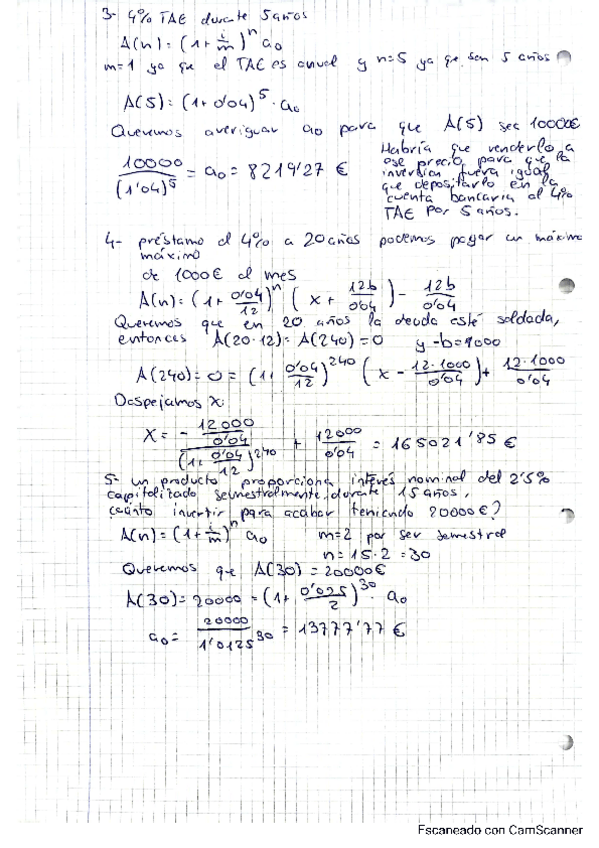 3- 4% TAE durante 5 años
A(n) = (1 + i/m)^n a₀
m=1 ya que el TAE es anual y n=5 ya que son 5 años
A(5) = (1+0'04)^5 · a₀
Queremos averiguar a₀ para que A(5) sea 10000€
10000/(1'04)^5 = a₀ = 8219'27 €
Habría que venderlo a
ese precio para que la
inversión fuera igual
que depositarlo en la
cuenta bancaria al 4%
TAE por 5 años.
4- préstamo al 4% a 20 años podemos pagar un máximo
máximo
de 1000€ al mes
A(n) = (1 + 0'04/12)^n (x + 12b/0'04) - 12b/0'04
Queremos que en 20 años la deuda esté saldada,
entonces A(20·12) = A(240) = 0 y -b=1000
A(240) = 0 = (1 + 0'04/12)^240 (x - 12·1000/0'04) + 12·1000/0'04
Despejamos x:
x = - (12000/0'04)/(1 + 0'04/12)^240 + 12000/0'04 = 165021'85 €
5- un producto proporciona interés nominal del 2'5%
capitalizado semestralmente durante 15 años,
¿cuánto invertir para acabar teniendo 20000€?
A(n) = (1 + i/m)^n a₀ m=2 por ser semestral
n = 15·2 = 30
Queremos que A(30) = 20000€
A(30) = 20000 = (1 + 0'025/2)^30 · a₀
a₀ = 20000/1'0125^30 = 13777'77 €
Escaneado con CamScanner